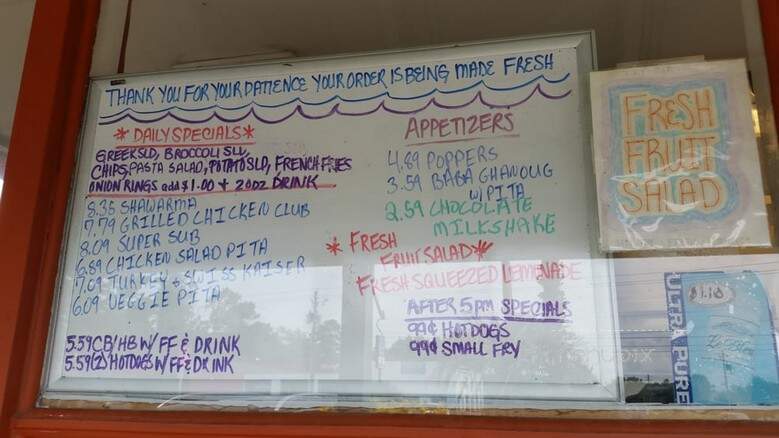 THANK YOU FOR YOUR PATIENCE YOUR ORDER IS BEING MADE FRESH
* DAILY SPECIALS *
GREEK SLD, BROCCOLI SLD,
CHIPS, PASTA SALAD, POTATO SLD, FRENCH FRIES
ONION RINGS add $1.00 + 20oz DRINK
8.35 SHAWARMA
7.79 GRILLED CHICKEN CLUB
8.09 SUPER SUB
6.89 CHICKEN SALAD PITA
7.09 TURKEY & SWISS KAISER
6.09 VEGGIE PITA
5.59 CB/HB W/ FF & DRINK
5.59 (2) HOTDOGS W/ FF & DRINK
APPETIZERS
4.89 POPPERS
3.59 BABA GHANOUG
W/ PITA
2.59 CHOCOLATE
MILKSHAKE
* FRESH
FRUIT SALAD *
FRESH SQUEEZED LEMONADE
AFTER 5PM SPECIALS
99¢ HOTDOGS
99¢ SMALL FRY
FRESH
FRUIT
SALAD
ULTRA PURE
$1.18